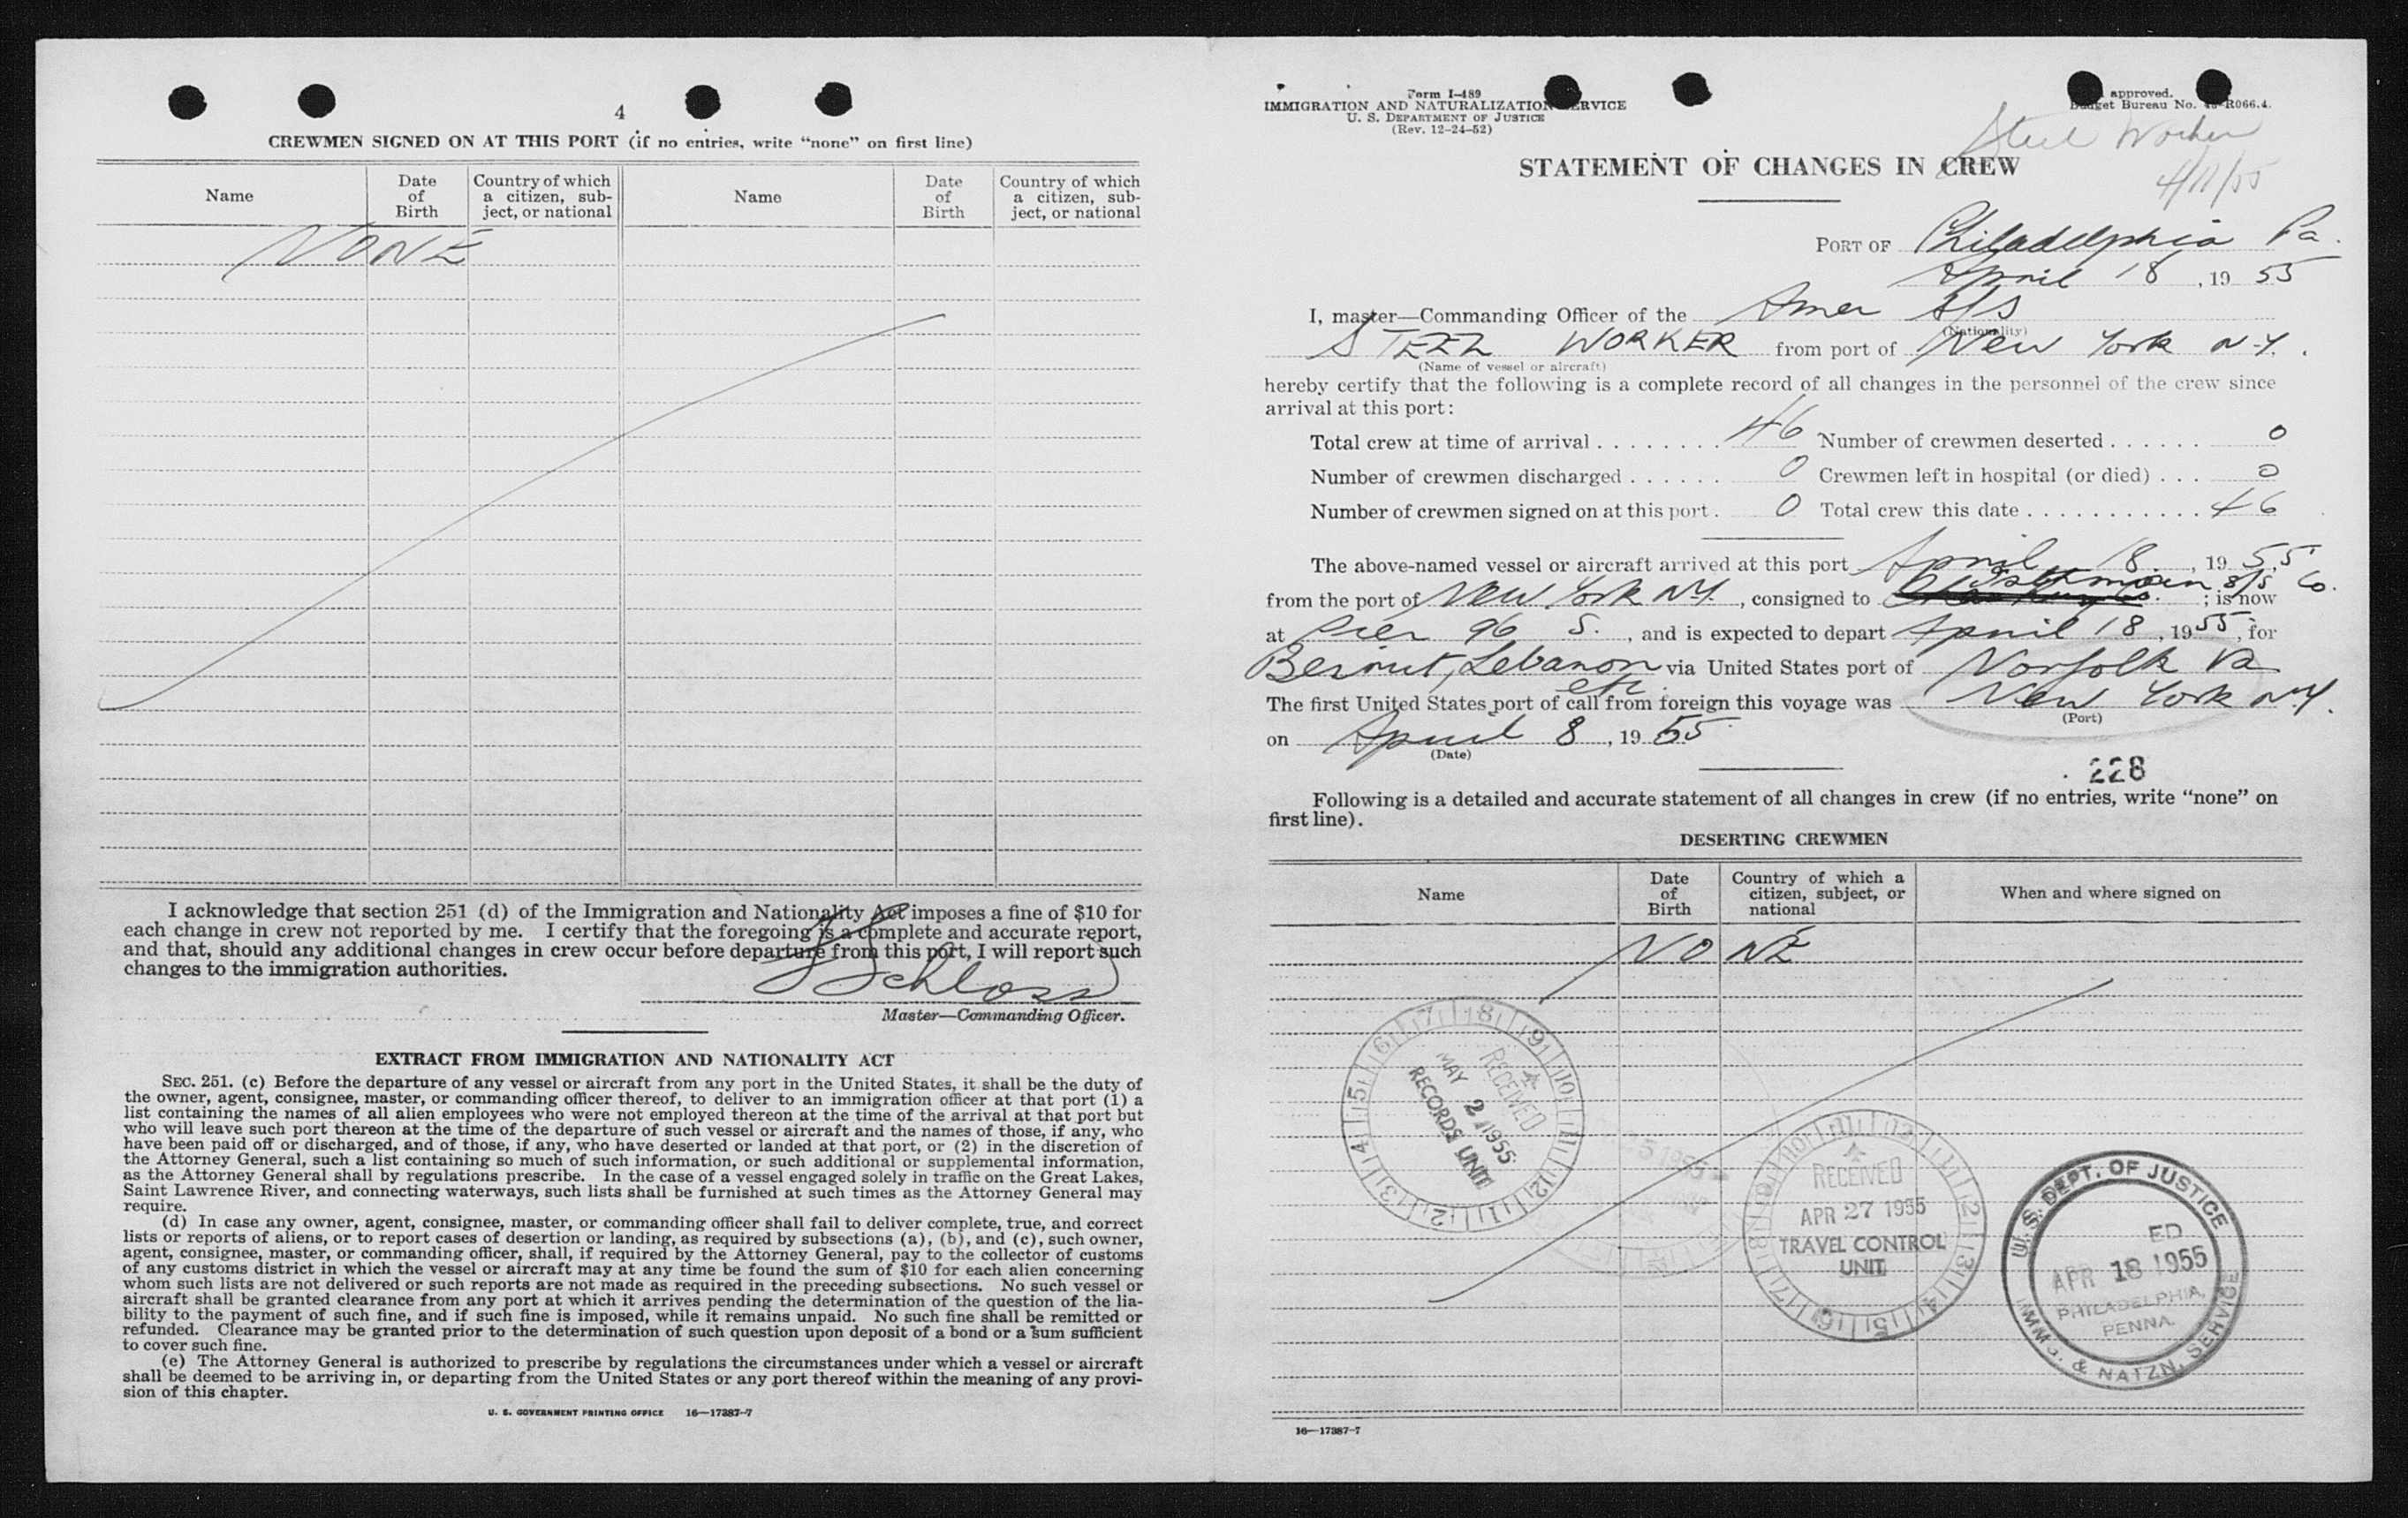 4
CREWMEN SIGNED ON AT THIS PORT (if no entries, write “none” on first line)
Name
Date of Birth
Country of which a citizen, subject, or national
Name
Date of Birth
Country of which a citizen, subject, or national
NONE
I acknowledge that section 251 (d) of the Immigration and Nationality Act imposes a fine of $10 for
each change in crew not reported by me. I certify that the foregoing is a complete and accurate report,
and that, should any additional changes in crew occur before departure from this port, I will report such
changes to the immigration authorities.
Schloss
Master—Commanding Officer.
EXTRACT FROM IMMIGRATION AND NATIONALITY ACT
SEC. 251. (c) Before the departure of any vessel or aircraft from any port in the United States, it shall be the duty of
the owner, agent, consignee, master, or commanding officer thereof, to deliver to an immigration officer at that port (1) a
list containing the names of all alien employees who were not employed thereon at the time of the arrival at that port but
who will leave such port thereon at the time of the departure of such vessel or aircraft and the names of those, if any, who
have been paid off or discharged, and of those, if any, who have deserted or landed at that port, or (2) in the discretion of
the Attorney General, such a list containing so much of such information, or such additional or supplemental information,
as the Attorney General shall by regulations prescribe. In the case of a vessel engaged solely in traffic on the Great Lakes,
Saint Lawrence River, and connecting waterways, such lists shall be furnished at such times as the Attorney General may
require.
(d) In case any owner, agent, consignee, master, or commanding officer shall fail to deliver complete, true, and correct
lists or reports of aliens, or to report cases of desertion or landing, as required by subsections (a), (b), and (c), such owner,
agent, consignee, master, or commanding officer, shall, if required by the Attorney General, pay to the collector of customs
of any customs district in which the vessel or aircraft may at any time be found the sum of $10 for each alien concerning
whom such lists are not delivered or such reports are not made as required in the preceding subsections. No such vessel or
aircraft shall be granted clearance from any port at which it arrives pending the determination of the question of the lia-
bility to the payment of such fine, and if such fine is imposed, while it remains unpaid. No such fine shall be remitted or
refunded. Clearance may be granted prior to the determination of such question upon deposit of a bond or a sum sufficient
to cover such fine.
(e) The Attorney General is authorized to prescribe by regulations the circumstances under which a vessel or aircraft
shall be deemed to be arriving in, or departing from the United States or any port thereof within the meaning of any provi-
sion of this chapter.
U. S. GOVERNMENT PRINTING OFFICE 16—17387-7
Form I-489
IMMIGRATION AND NATURALIZATION SERVICE
U. S. DEPARTMENT OF JUSTICE
(Rev. 12-24-52)
approved.
Budget Bureau No. R066.4.
Steel Worker
4/11/55
STATEMENT OF CHANGES IN CREW
PORT OF Philadelphia Pa.
April 18, 1955
I, master—Commanding Officer of the Amer S/S
(Nationality)
STEEL WORKER from port of New York N.Y.
(Name of vessel or aircraft)
hereby certify that the following is a complete record of all changes in the personnel of the crew since
arrival at this port:
Total crew at time of arrival . . . . . . . . 46 Number of crewmen deserted . . . . . . 0
Number of crewmen discharged . . . . . . 0 Crewmen left in hospital (or died) . . . 0
Number of crewmen signed on at this port . 0 Total crew this date . . . . . . . . . . . 46
The above-named vessel or aircraft arrived at this port April 18, 1955
Isthmian S/S Co.
from the port of New York N.Y., consigned to ; is now
at Pier 96 S., and is expected to depart April 18, 1955, for
Beirut, Lebanon etc. via United States port of Norfolk Va
The first United States port of call from foreign this voyage was New York N.Y.
(Port)
on April 8, 1955
(Date)
228
Following is a detailed and accurate statement of all changes in crew (if no entries, write “none” on
first line).
DESERTING CREWMEN
Name
Date of Birth
Country of which a citizen, subject, or national
When and where signed on
NONE
7 8 9 10 11 12 1 2 3 4 5 6
RECEIVED
MAY 2 1955
RECORDS UNIT
RECEIVED
APR 27 1955
TRAVEL CONTROL
UNIT
U. S. DEPT. OF JUSTICE
ED
APR 18 1955
PHILADELPHIA,
PENNA.
IMM. & NATZN. SERVICE
16—17387-7